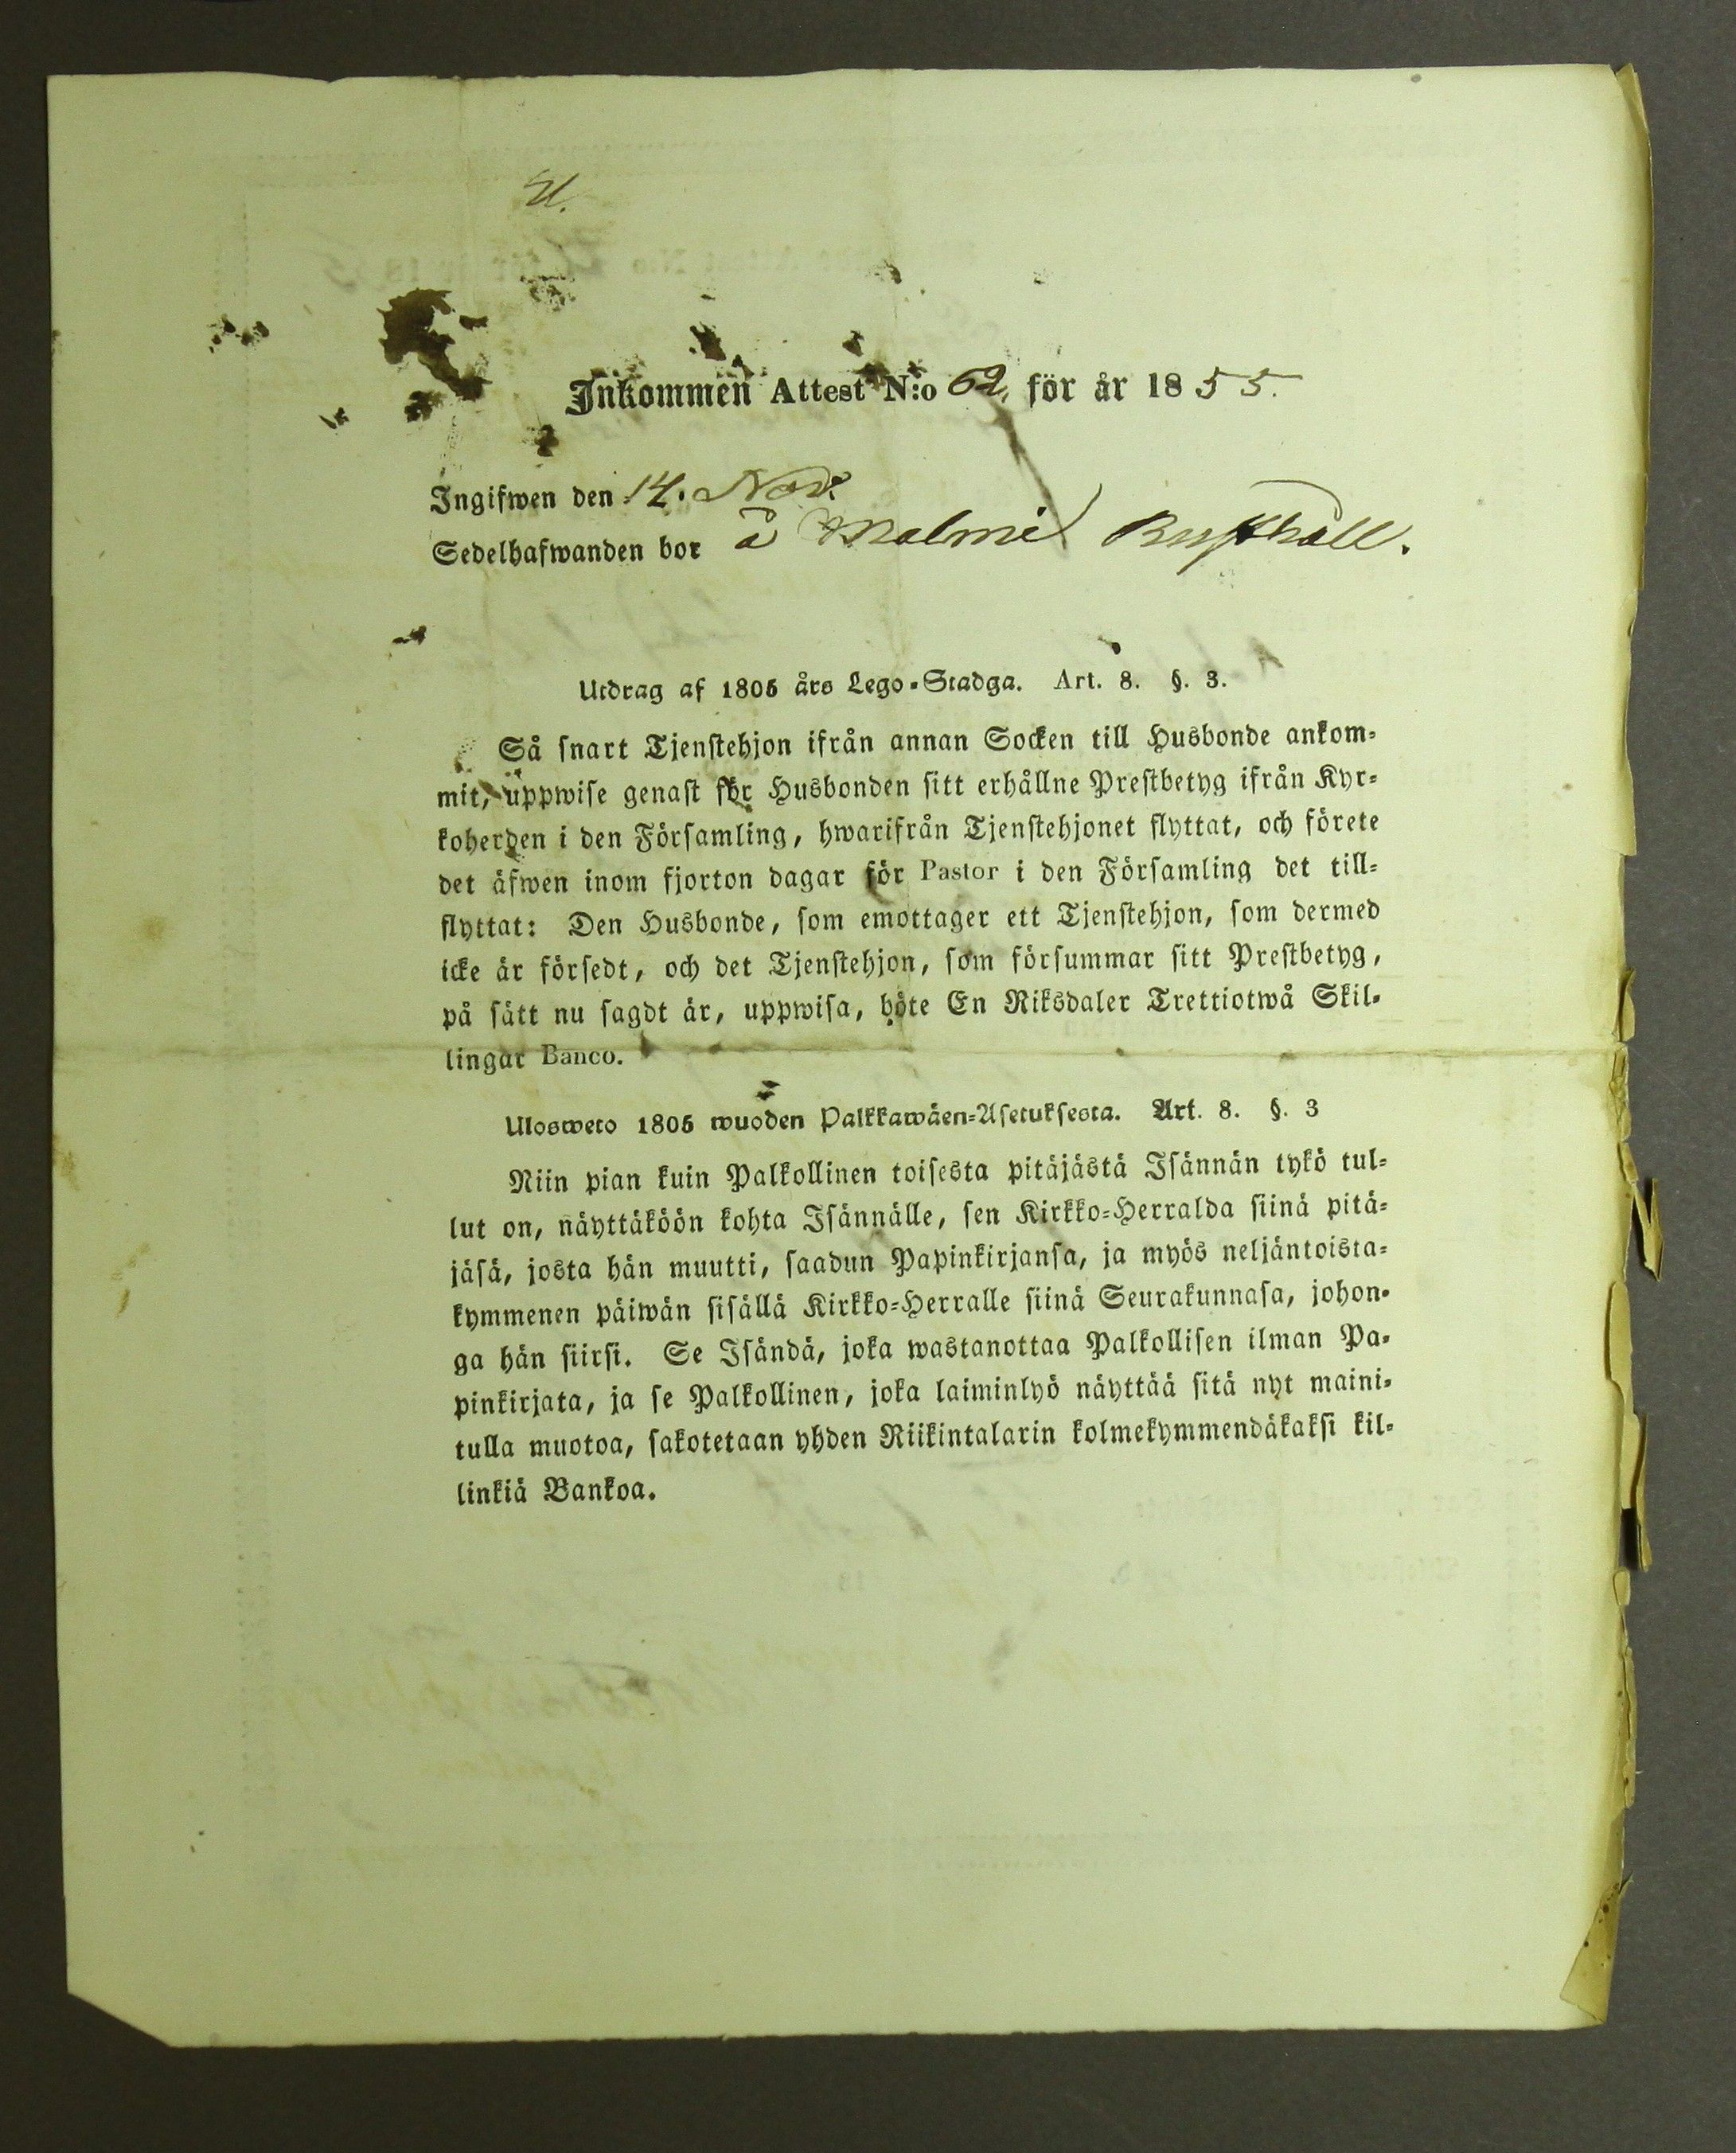 Inkommen Attest N:o 62, för år 1855.
Ingifwen den 14. Nov.
Sedelhafwanden bor å Malmi Rusthåll.
Utdrag af 1805 års Lego-Stadga. Art. 8. §. 3.
Så snart Tjenstehjon ifrån annan Socken till Husbonde ankom-
mit, uppwise genast för Husbonden sitt erhållne Prestbetyg ifrån Kyr-
koherden i den Församling, hwarifrån Tjenstehjonet flyttat, och förete
det äfwen inom fjorton dagar för Pastor i den Församling det till-
flyttat: Den Husbonde, som emottager ett Tjenstehjon, som dermed
icke är försedt, och det Tjenstehjon, som försummar sitt Prestbetyg,
på sätt nu sagdt är, uppwisa, böte En Riksdaler Trettiotwå Skil-
lingar Banco.
Ulosweto 1805 wuoden Palkkawäen-Asetuksesta. Art. 8. §. 3
Niin pian kuin Palkollinen toisesta pitäjästä Isännän tykö tul-
lut on, näyttäköön kohta Isännälle, sen Kirkko-Herralda siinä pitä-
jäsä, josta hän muutti, saadun Papinkirjansa, ja myös neljäntoista-
kymmenen päiwän sisällä Kirkko-Herralle siinä Seurakunnasa, johon-
ga hän siirsi. Se Isändä, joka wastanottaa Palkollisen ilman Pa-
pinkirjata, ja se Palkollinen, joka laiminlyö näyttää sitä nyt maini-
tulla muotoa, sakotetaan yhden Riikintalarin kolmekymmendäkaksi kil-
linkiä Bankoa.